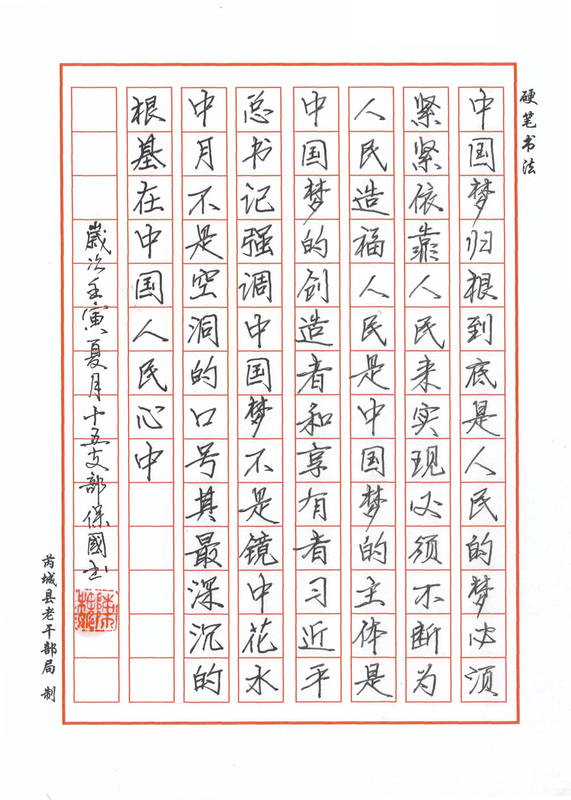 硬笔书法
中国梦归根到底是人民的梦必须
紧紧依靠人民来实现必须不断为
人民造福人民是中国梦的主体是
中国梦的创造者和享有者习近平
总书记强调中国梦不是镜中花水
中月不是空洞的口号其最深沉的
根基在中国人民心中
歲次壬寅夏月十五支部保國书
芮城县老干部局 制